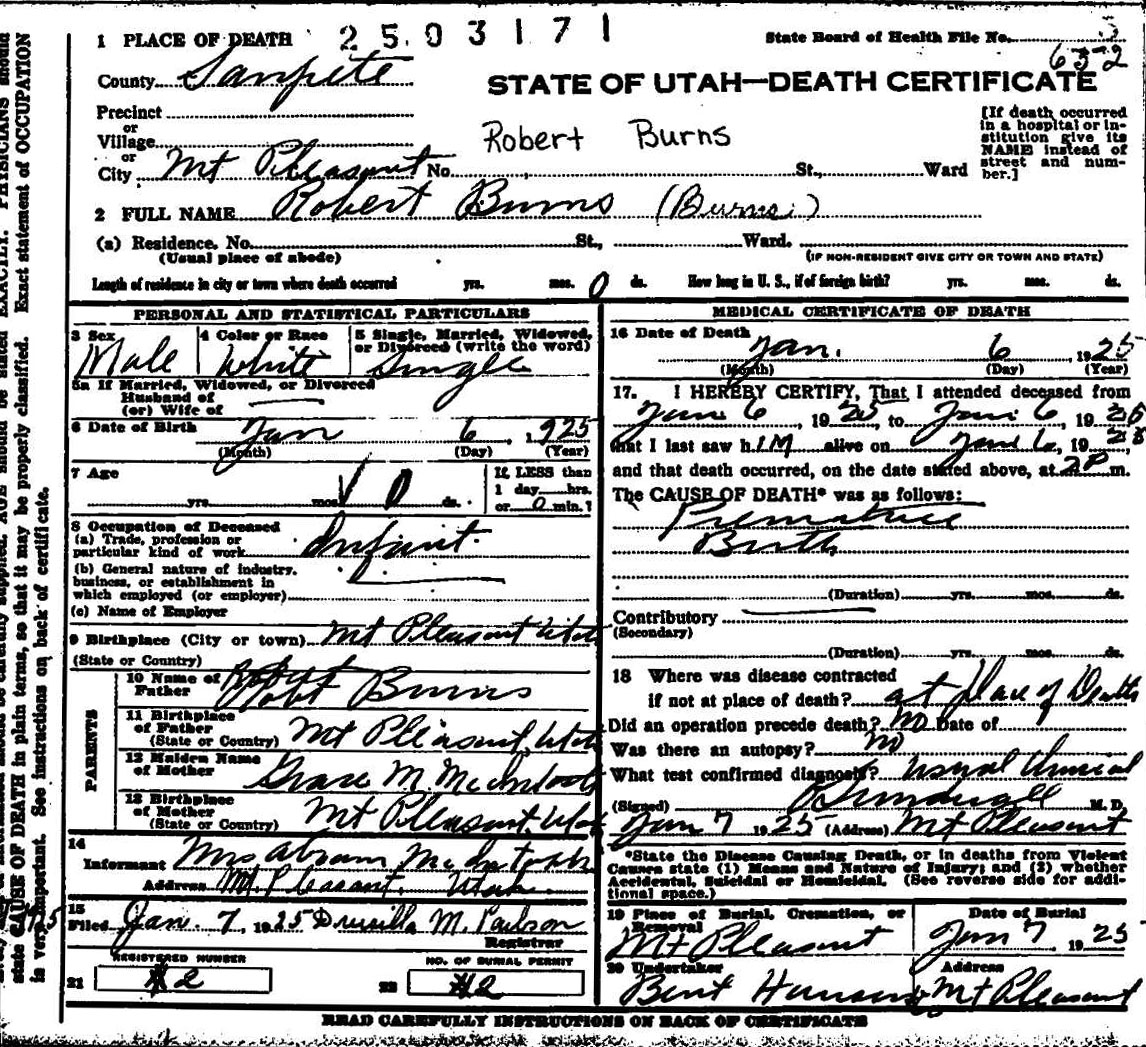 1 PLACE OF DEATH 2 5 0 3 1 7 1
State Board of Health File No. 5
632
County Sanpete
STATE OF UTAH—DEATH CERTIFICATE
Precinct
or
Village
or
City Mt Pleasant No. , St., Ward
Robert Burns
[If death occurred
in a hospital or in-
stitution give its
NAME instead of
street and num-
ber.]
2 FULL NAME Robert Burns (Burns)
(a) Residence. No. St., Ward.
(Usual place of abode)
(IF NON-RESIDENT GIVE CITY OR TOWN AND STATE)
Length of residence in city or town where death occurred yrs. mos. 0 ds. How long in U. S., if of foreign birth? yrs. mos. ds.
PERSONAL AND STATISTICAL PARTICULARS
3 Sex
Male
4 Color or Race
White
5 Single, Married, Widowed,
or Divorced (write the word)
Single
5a If Married, Widowed, or Divorced
Husband of
(or) Wife of
6 Date of Birth Jan 6 1925
(Month) (Day) (Year)
7 Age
yrs. mos. 0 ds.
If LESS than
1 day hrs.
or 0 min.?
8 Occupation of Deceased
(a) Trade, profession or
particular kind of work Infant
(b) General nature of industry,
business, or establishment in
which employed (or employer)
(c) Name of Employer
9 Birthplace (City or town) Mt Pleasant Utah
(State or Country)
PARENTS
10 Name of
Father Robt Burns
11 Birthplace
of Father
(State or Country) Mt Pleasant, Utah
12 Maiden Name
of Mother Grace M McIntosh
13 Birthplace
of Mother
(State or Country) Mt Pleasant, Utah
14
Informant Mrs Abram McIntosh
Address Mt. Pleasant. Utah.
15
Filed Jan. 7 1925 Drucilla M. Paulson
Registrar
REGISTERED NUMBER
21 #2
NO. OF BURIAL PERMIT
22 #2
MEDICAL CERTIFICATE OF DEATH
16 Date of Death
Jan. 6 1925
(Month) (Day) (Year)
17. I HEREBY CERTIFY, That I attended deceased from
Jan 6, 1925, to Jan 6, 1925
that I last saw him alive on Jan 6, 1925,
and that death occurred, on the date stated above, at 2P m.
The CAUSE OF DEATH* was as follows:
Premature
Birth
(Duration) yrs. mos. ds.
Contributory
(Secondary)
(Duration) yrs. mos. ds.
18 Where was disease contracted
if not at place of death? at place of Death
Did an operation precede death? No Date of
Was there an autopsy? No
What test confirmed diagnosis? Usual Clinical
(Signed) M. D.
Jan 7 1925 (Address) Mt Pleasant
*State the Disease Causing Death, or in deaths from Violent
Causes state (1) Means and Nature of Injury; and (2) whether
Accidental, Suicidal or Homicidal. (See reverse side for addi-
tional space.)
19 Place of Burial, Cremation, or
Removal
Mt Pleasant
Date of Burial
Jan 7 1925
20 Undertaker
Bent Hansen
Address
Mt Pleasant
READ CAREFULLY INSTRUCTIONS ON BACK OF CERTIFICATE
EXACTLY. PHYSICIANS should
state CAUSE OF DEATH in plain terms, so that it may be properly classified. Exact statement of OCCUPATION
is very important. See instructions on back of certificate.